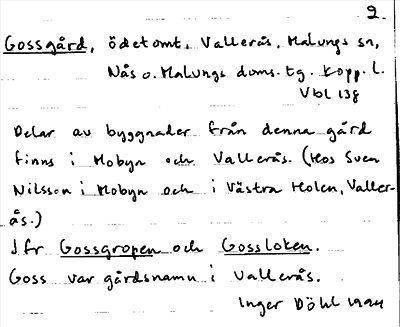 2.
Gossgård, ödetomt, Vallerås, Malungs sn,
Nås o. Malungs doms. tg. Kopp. l.
Vbl 138
Delar av byggnader från denna gård
finns i Mobyn och Vallerås. (Hos Sven
Nilsson i Mobyn och i Västra Holen, Valler-
ås.)
Jfr Gossgropen och Gossloken.
Goss var gårdsnamn i Vallerås.
Inger Döhl 1994